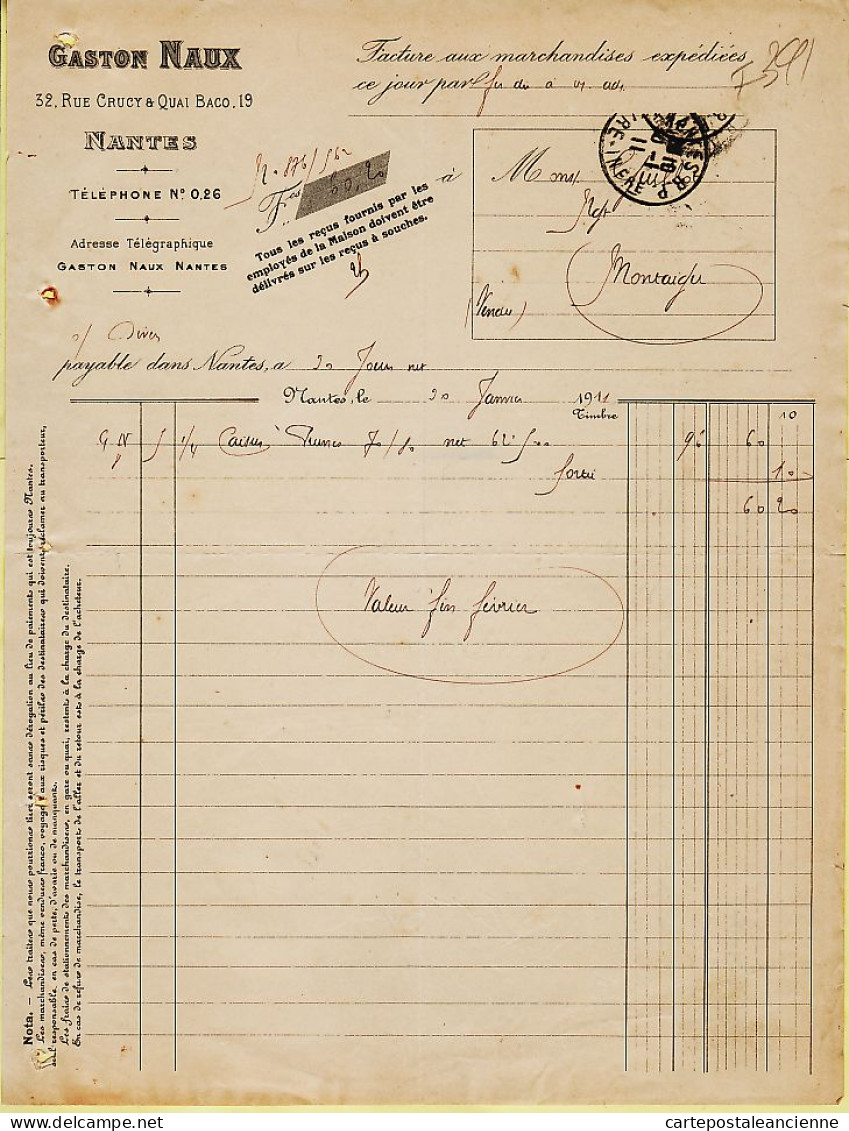 GASTON NAUX
32, RUE CRUCY & QUAI BACO, 19
NANTES
TÉLÉPHONE Nº 0,26
Adresse Télégraphique
GASTON NAUX NANTES
Facture aux marchandises expédiées
ce jour par
à
60,20
Tous les reçus fournis par les
employés de la Maison doivent être
délivrés sur les reçus à souches.
Mons
Montaigu
(Vendu)
payable dans Nantes, a 30 Jours net
Nantes, le 30 Janvier 1911
Timbre 10
G N 5 1/4 Caisses Prunes 70/80 net 62 K 500 96 60
10
60 20
Valeur fin février
Nota. — Les traites que nous pourrions tirer seront sans dérogation au lieu de paiement qui est toujours Nantes.
Les marchandises, même vendues franco, voyagent aux risques et périls des destinataires qui doivent réclamer au transporteur,
seul responsable, en cas de perte, d'avarie ou de manquant.
Les frais de stationnement des marchandises, en gare ou quai, restent à la charge du destinataire.
En cas de refus de marchandise, le transport de l'aller et du retour est à la charge de l'acheteur.
cartepostaleancienne